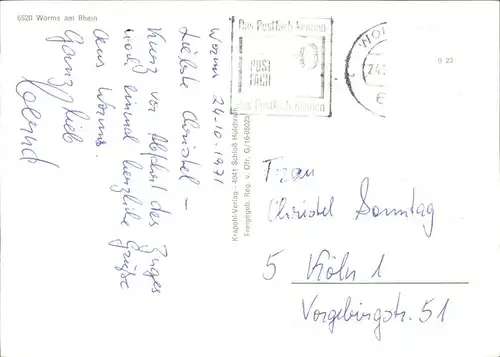 6520 Worms am Rhein
Worms 24-10-1971
Liebste Christel –
Kurz vor Abfahrt des Zuges
noch einmal herzliche Grüße
aus Worms.
Ganz lieb
Krapohl-Verlag - 4041 Schloß Hülchrath
Freigegeb. Reg. v. Obf. G/16-05025
Das Postfach kennen
POST
FACH
das Postfach nennen
24.
0 23
Frau
Christel Sonntag
5 Köln 1
Vorgebirgstr. 51